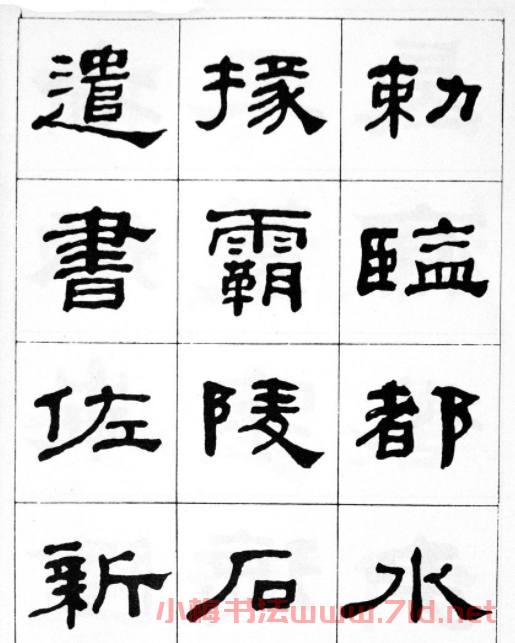 勅監都水
掾霸陵石
遣書佐新
小梅书法www.7ld.net